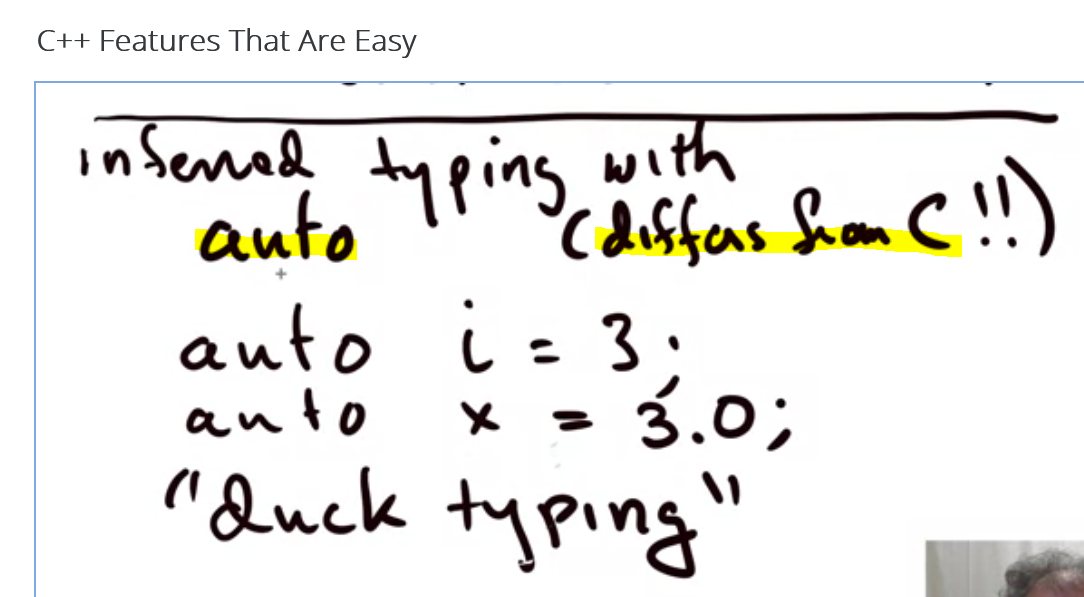 C++ Features That Are Easy
inferred typing with
auto (differs from C!!)
auto i = 3;
auto x = 3.0;
"Duck typing"